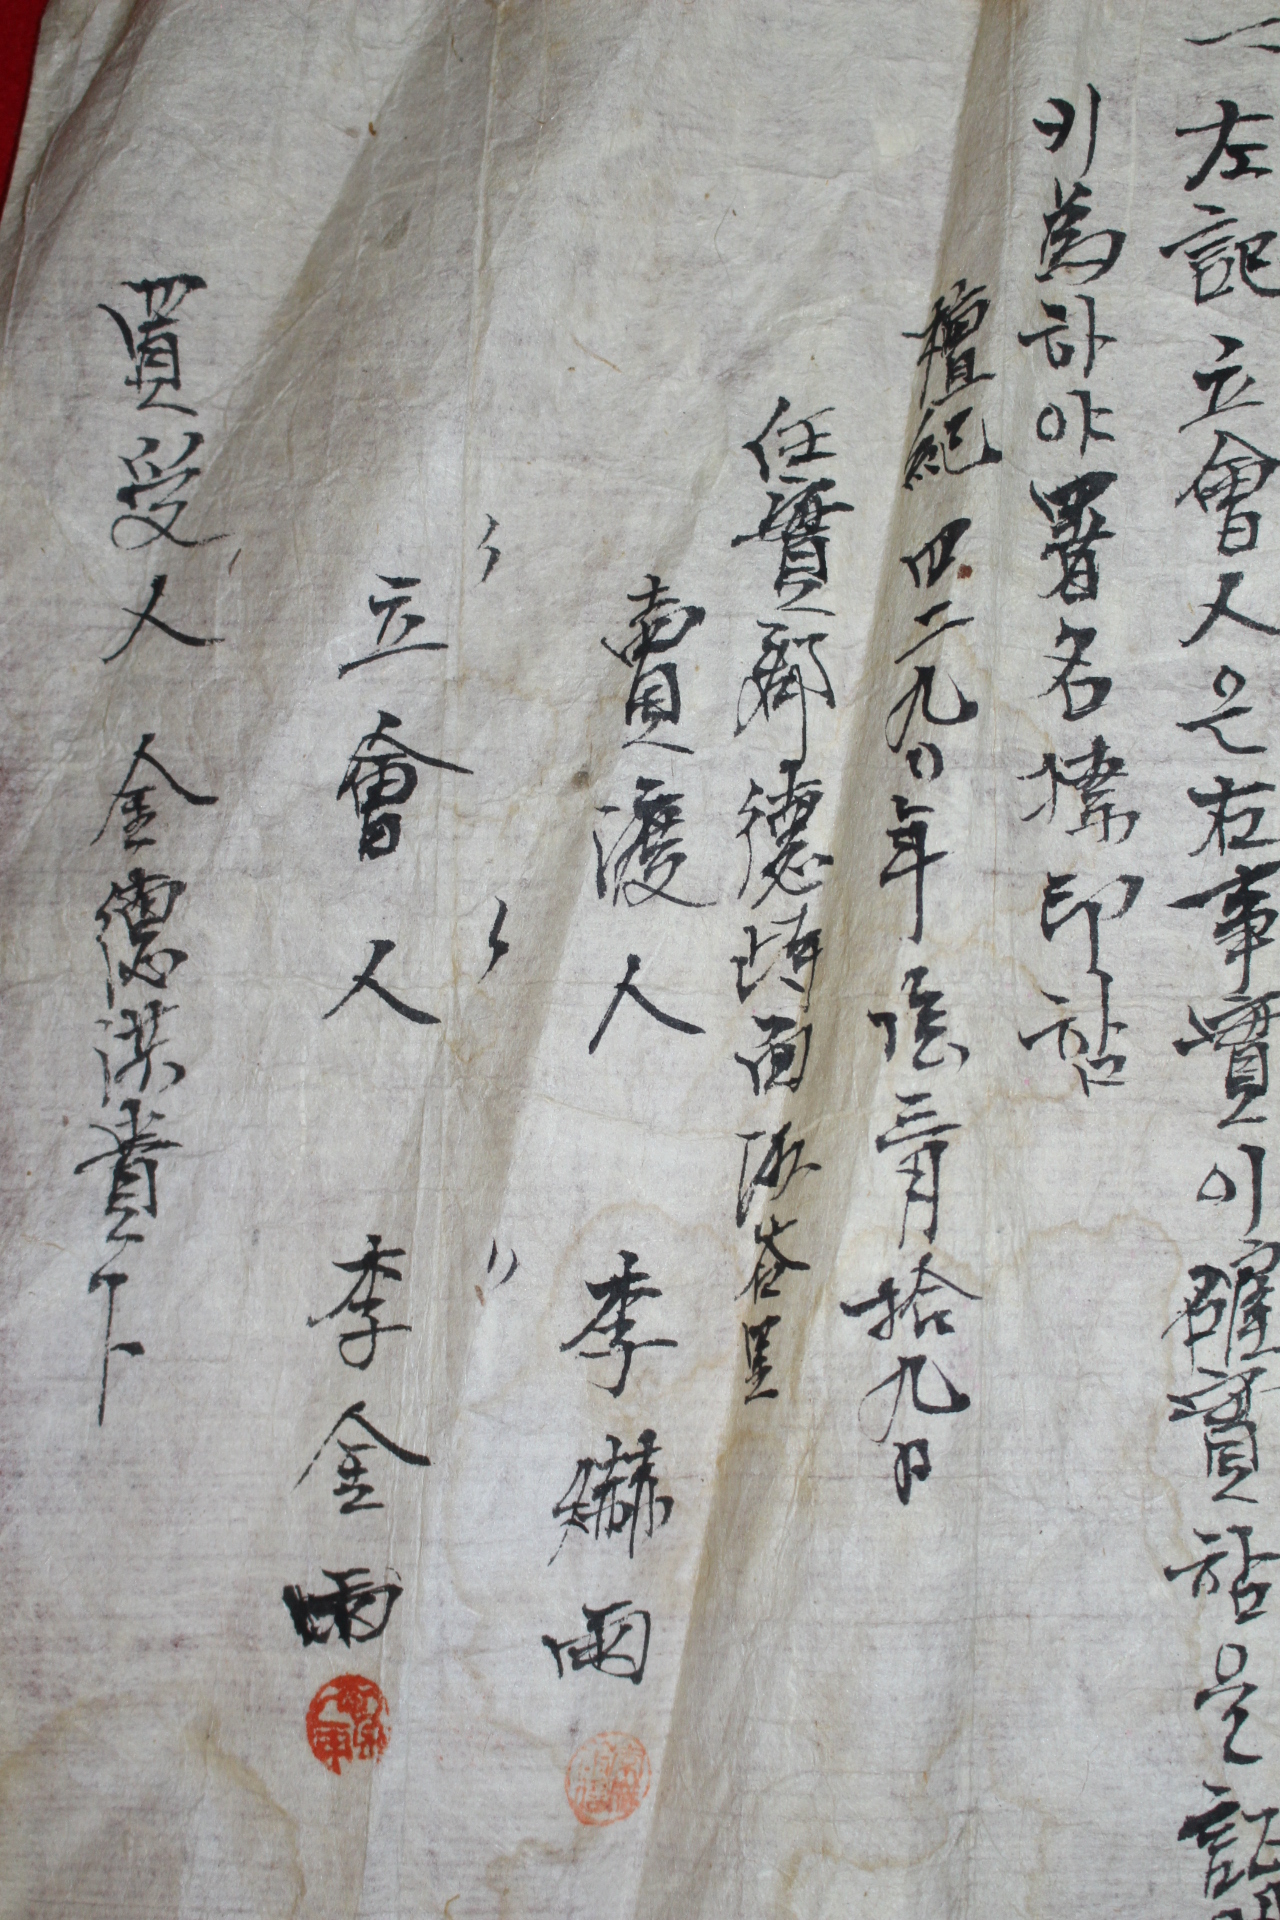 一 左記立會人은右事實이確實함은証
키 為하야署名捺印함
檀紀四二九〇年陰三月拾九日
任實郡德峙面 里
賣渡人 李爀雨
〃 〃 〃
立會人 李金雨
買受人 金德洪貴下